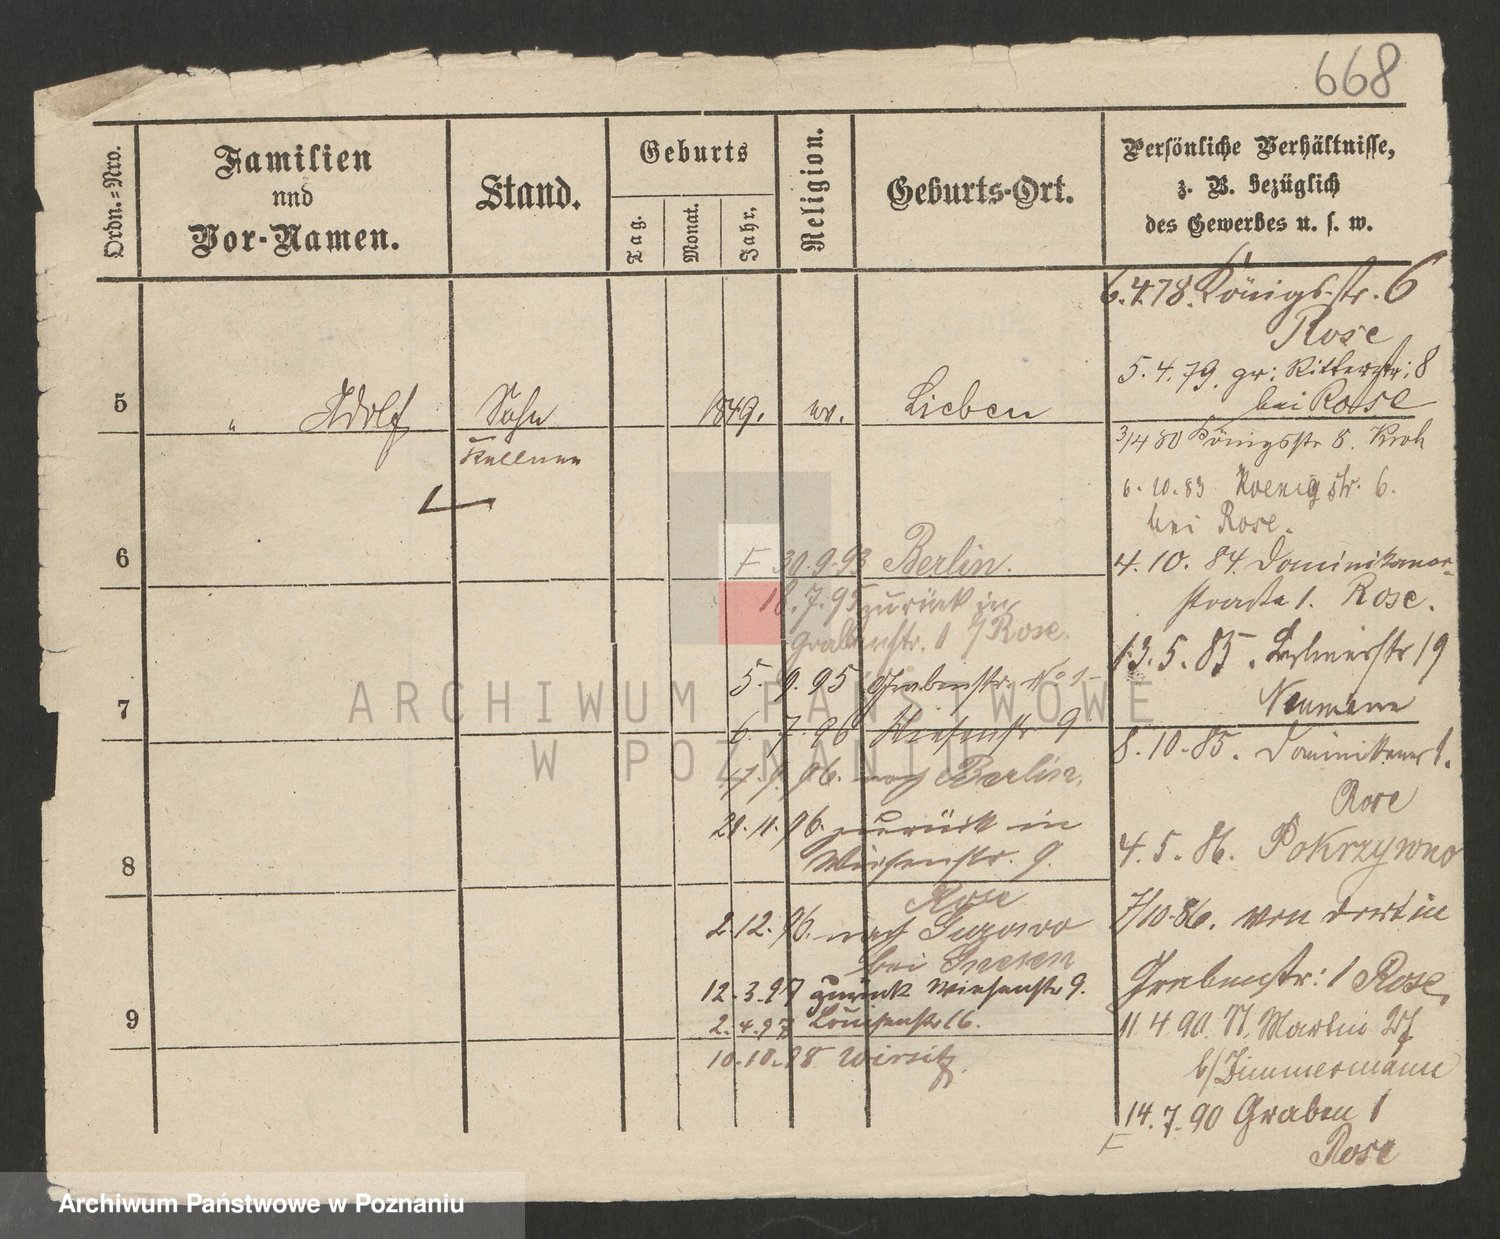 668
Ordn.-Nro.
Familien
und
Vor-Namen.
Stand.
Geburts
Tag.
Monat.
Jahr.
Religion.
Geburts-Ort.
Persönliche Verhältnisse,
z. B. bezüglich
des Gewerbes u. s. w.
6.4.78. Königs-str. 6
Rose
5.4.79. gr: Ritterstr: 8
bei Rose
5
" Adolf
Sohn
1849.
ev.
Lieben
Kellner
3/4 80 Königsstr 8. Kroh
6.10.83 Koenigstr. 6.
bei Rose.
6
F 30.9.93 Berlin.
18.7.95 zurück in
Grabenstr. 1 / Rose.
4.10.84. Dominikaner-
straße 1. Rose.
13.5.85. 19
Neumann
5.9.95 Grabenstr. No 1
7
6.7.96 Wiesenstr 9
8.10.85. Dominikaner 1.
Rose
17.9.96. nach Berlin.
21.11.96. zurück in
Wiesenstr. 9.
Rose
4.5.86. Pokrzywno
8
7/10.86. von dort in
Grabenstr: 1 Rose.
2.12.96. nach Gurowo
bei Gnesen
12.3.97 zurück Wiesenstr 9.
2.4.97 Louisenstr 16.
9
11.4.90. St. Martin
b/Zimmermann
10.10.98 Wirsitz.
14.7.90 Graben 1
F
Rose
ARCHIWUM PAŃSTWOWE
W POZNANIU
Archiwum Państwowe w Poznaniu